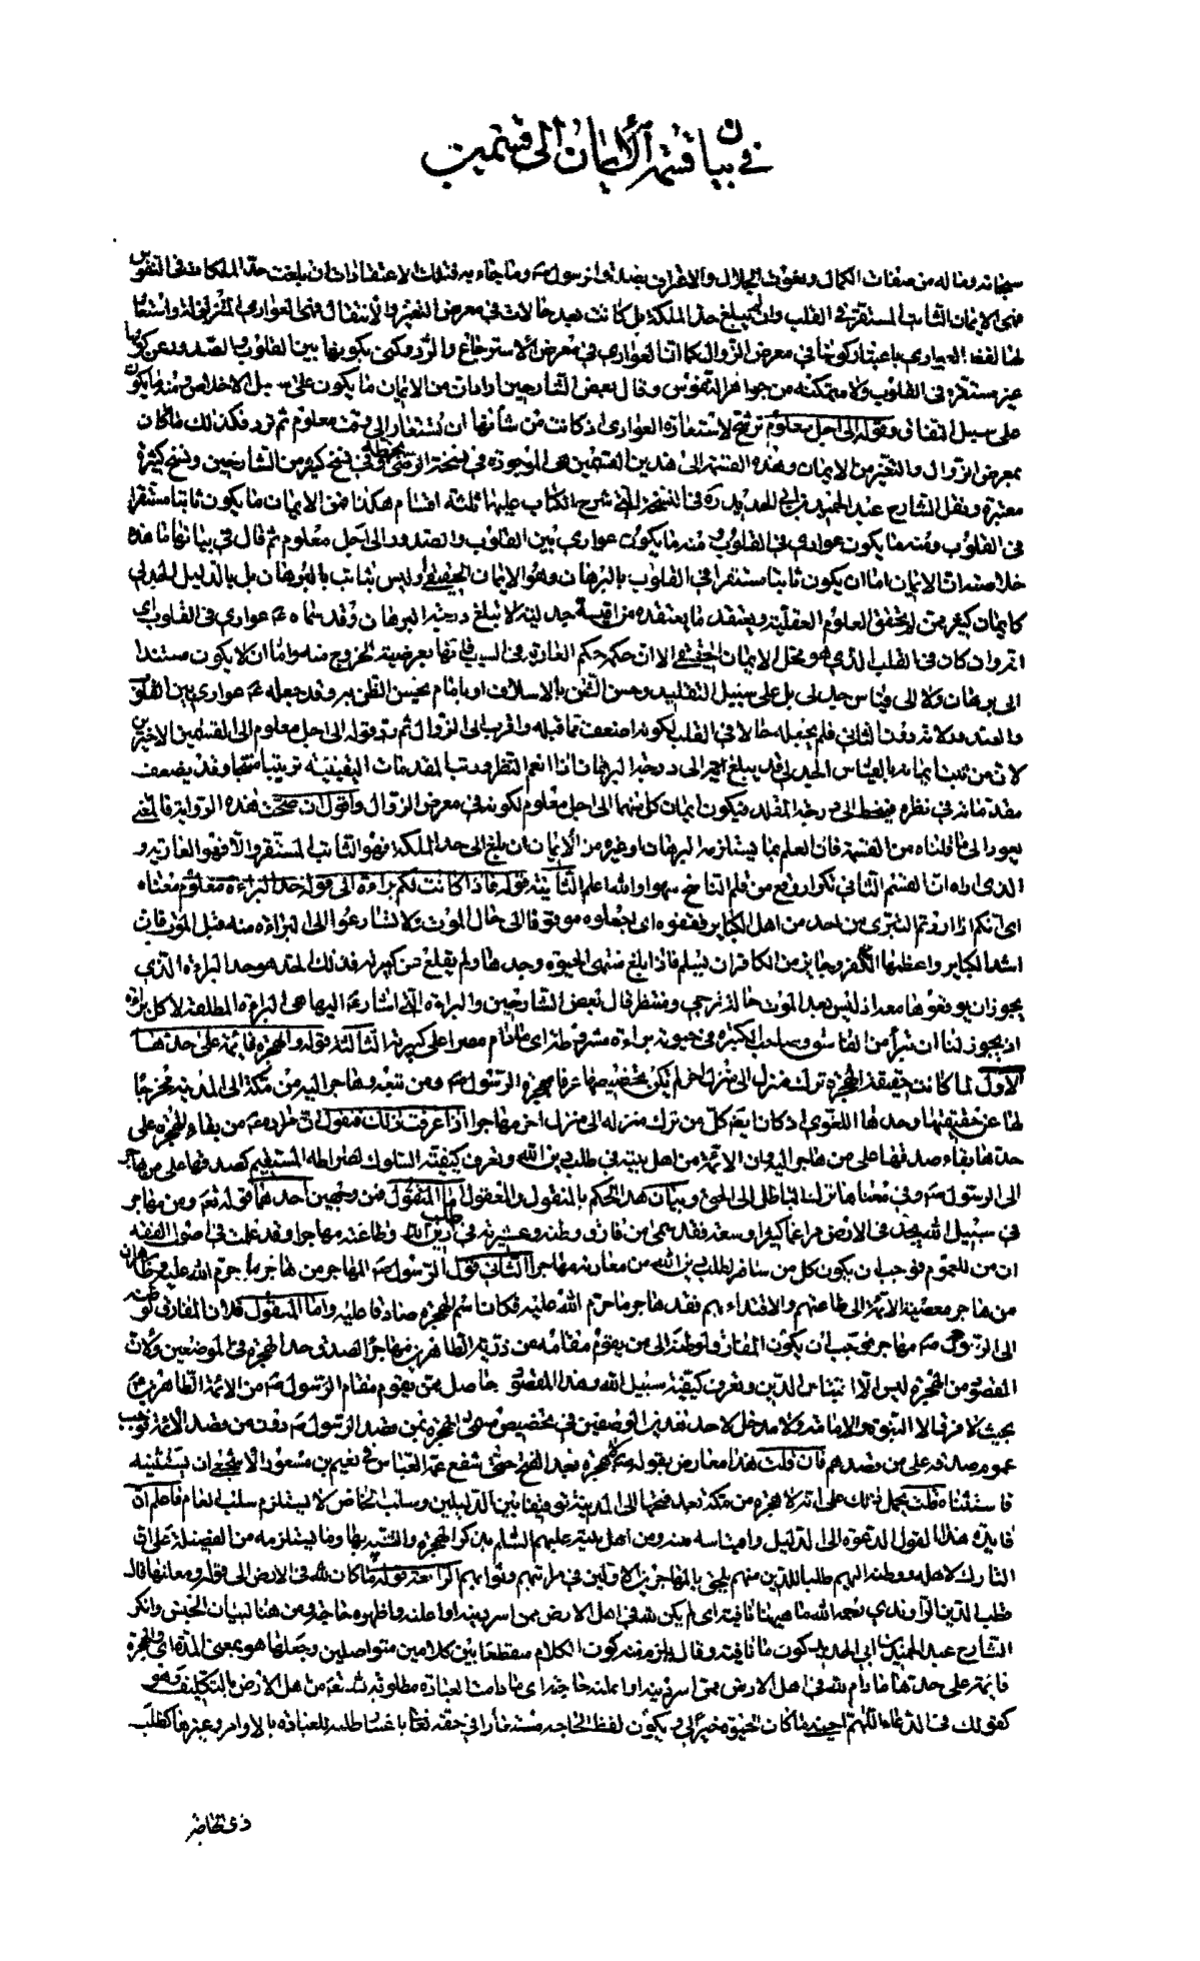 في بيان قسمة الايمان الى قسمين
سبحانه وماله من صفات الكمال ونعوت الجلال والاعتراف بصدق رسوله صم وما جاء به فتلك الاعتقادات ان بلغت حد الملكات في النفوس
فهي الايمان الثابت المستقر في القلب وان لم يبلغ حد الملكة بل كانت بعد حالات في معرض التغير والانتقال فهي العواري المتزلزلة واستعار
لها لفظ العواري باعتبار كونها في معرض الزوال كما ان العواري في معرض الاسترجاع والرد وكنى بكونها بين القلوب والصدور عن كونها
غير مستقرة في القلوب ولا متمكنة من جواهر النفوس وقال بعض الشارحين اراد من الايمان ما يكون على سبيل الاخلاص ومنه ما يكون
على سبيل النفاق وقوله الى اجل معلوم ترشيح لاستعارة العواري اذ كانت من شأنها ان تستعار الى وقت معلوم ثم ترد فكذلك ما كان
بمعرض الزوال والتغير من الايمان وهذه القسمة الى هذين القسمين هي الموجودة في نسخة الرضي بخطه وفي نسخ كثير من الشارحين ونسخ كثيرة
معتبرة ونقل الشارح عبد الحميد بن ابي الحديد ره في النسخة التي شرح الكتاب عليها ثلثة اقسام هكذا فمن الايمان ما يكون ثابتا مستقرا
في القلوب ومنه ما يكون عواري في القلوب ومنه ما يكون عواري بين القلوب والصدور الى اجل معلوم ثم قال في بيانها ما هذه
خلاصته ان الايمان اما ان يكون ثابتا مستقرا في القلوب بالبرهان وهو الايمان الحقيقي او ليس بثابت بالبرهان بل بالدليل الجدلي
كايمان كثير ممن لم يحقق العلوم العقلية ويعتقد ما يعتقده من اقيسة جدلية لا تبلغ درجة البرهان وقد سماه عم عواري في القلوب اي
انه وان كان في القلب الذي هو محل الايمان الحقيقي الا ان حكمه حكم العارية في البيت فانها بعرضية الخروج منه واما ان لا يكون مستندا
الى برهان ولا الى قياس جدلي بل على سبيل التقليد وحسن الظن بالاسلاف او بامام يحسن الظن به وقد جعله عم عواري بين القلوب
والصدور لانه دون الثاني فلم يجعله حالا في القلب لكونه اضعف مما قبله واقرب الى الزوال ثم رد قوله الى اجل معلوم الى القسمين الاخيرين
لان من ثبت ايمانه بالقياس الجدلي قد يبلغ الى درجة البرهان اذا انعم النظر ورتب المقدمات اليقينية ترتيبا منتجا وقد يضعف
مقدماته في نظره فينحط الى درجة المقلد فيكون ايمان كل منهما الى اجل معلوم لكونه في معرض الزوال واقول ان صحت هذه الرواية فالمعنى
يعود الى ما قلناه من القسمة فان العلم بما يستلزمه البرهان او غيره من الايمان ان بلغ الى حد الملكة فهو الثابت المستقر والا فهو العارية و
الذي اراه ان القسم الثاني تكرار وقع من قلم الناسخ سهوا والله اعلم الثانية قوله فاذا كانت لكم براءة الى قوله حد البراءة معلوم معناه
اي انكم اذا اردتم التبري من احد من اهل الكباير فقفوه اي اجعلوه موقوفا الى حال الموت ولا تسارعوا الى البراءة منه قبل الموت فان
اشد الكباير واعظمها الكفر وجايز من الكافر ان يسلم فاذا بلغ منتهى الحيوة وحدها ولم يقلع عن كبيرته فذلك الحد هو حد البراءة الذي
يجوز ان يوقعوها معه اذ ليس بعد الموت حالة ترجى وتنتظر قال بعض الشارحين والبراءة التي اشار عم اليها هي البراءة المطلقة لا كل براءة
اذ يجوز لنا ان نتبرأ من الفاسق وصاحب الكبيرة في حيوته براءة مشروطة اي ما دام مصرا على كبيرته الثالثة قوله والهجرة قائمة على حدها
الاول لما كانت حقيقة الهجرة ترك منزل الى منزل اخر لم يكن تخصيصها عرفا بهجرة الرسول صم ومن تبعه وهاجر اليه من مكة الى المدينة مخرجا
لها عن حقيقتها وحدها اللغوي اذ كان يعم كل من ترك منزله الى منزل اخر مهاجرا اذا عرفت ذلك فنقول ان مراده عم من بقاء الهجرة على
حدها بقاء صدقها على من هاجر اليه والى الائمة من اهل بيته في طلب دين الله وتعرف كيفية السلوك لصراطه المستقيم كصدقها على من هاجر
الى الرسول صم وفي معناها ترك الباطل الى الحق وبيان هذا الحكم بالمنقول والمعقول اما المنقول فمن وجهين احدهما قوله تعم ومن يهاجر
في سبيل الله يجد في الارض مراغما كثيرا وسعة فقد سمى من فارق وطنه وعشيرته في طلب دين الله وطاعته مهاجرا وقد علمت في اصول الفقه
ان من للعموم فوجب ان يكون كل من سافر لطلب دين الله من معادنه مهاجرا الثاني قول الرسول صم المهاجر من هاجر ما حرم الله عليه وظاهر ان
من هاجر معصية الائمة الى طاعتهم والاقتداء بهم فقد هاجر ما حرم الله عليه فكان اسم الهجرة صادقا عليه واما المعقول فلان المفارق لوطنه
الى الرسول صم مهاجر فوجب ان يكون المفارق لوطنه الى من يقوم مقامه من ذريته الطاهرين مهاجرا لصدق حد الهجرة في الموضعين ولان
المقصود من الهجرة ليس الا اقتباس الدين وتعرف كيفية سبيل الله وهذا المقصود حاصل ممن يقوم مقام الرسول صم من الائمة الطاهرين عم
بحيث لا فرق الا النبوة والامامة ولا مدخل لاحد هذين الوصفين في تخصيص مسمى الهجرة بمن قصد الرسول صم دون من قصد الائمة فوجب
عموم صدقه على من قصدهم فان قلت هذا معارض بقوله صم لا هجرة بعد الفتح حتى شفع عمه العباس في نعيم بن مسعود الاشجعي ان يستثنيه
فاستثناه قلت يحمل ذلك على انه لا هجرة من مكة بعد فتحها الى المدينة توفيقا بين الدليلين وسلب الخاص لا يستلزم سلب العام فاعلم ان
فايدة هذا القول الدعوة الى الدليل والاقتباس منه ومن اهل بيته عليهم السلم بذكر الهجرة والتنبيه بها وما يستلزمه من الفضيلة على ان
التارك لاهله ووطنه اليهم طلبا للدين منهم يلحق بالمهاجرين الاولين في مراتبهم وثوابهم الرابعة قوله ما كان لله في الارض الى قوله ومعلنها قال
قطب الدين الراوندي رحمه الله ما ههنا نافية اي لم يكن لله في اهل الارض ممن اسر دينه او اعلنه واظهره حاجة ومن هنا لبيان الجنس وانكر
الشارح عبد الحميد بن ابي الحديد كون ما نافية وقال يلزم منه كون الكلام منقطعا بين كلامين متواصلين وجعلها هو بمعنى المدة اي والهجرة
قائمة على حدها ما دام لله في اهل الارض ممن اسر دينه او اعلنه حاجة اي ما دامت العبادة مطلوبة لله تعم من اهل الارض بالتكليف وهو
كقولك في الدعاء اللهم احيني ما كان الحيوة خيرا لي ويكون لفظ الحاجة مستعارا في حقه تعم باعتبار طلبه للعباده بالاوامر وغيرها كطلب
ذي الحاجة